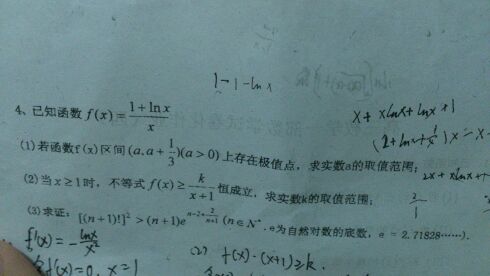 1-1-lnx
4、已知函数 f(x)=\frac{1+\ln x}{x}
x + xlnx + lnx + 1
(1)若函数f(x)区间(a, a+\frac{1}{3})(a>0)上存在极值点, 求实数a的取值范围;
(2)当 x≥1时, 不等式 f(x)≥\frac{k}{x+1} 恒成立, 求实数k的取值范围;
(3)求证: [(n+1)!]^2 > (n+1)e^{n-2+\frac{2}{n+1}} (n∈N^*, e为自然对数的底数, e = 2.71828……).
f'(x) = -\frac{lnx}{x^2}
(2) f(x)·(x+1)≥k.
f(x)=0, x=1